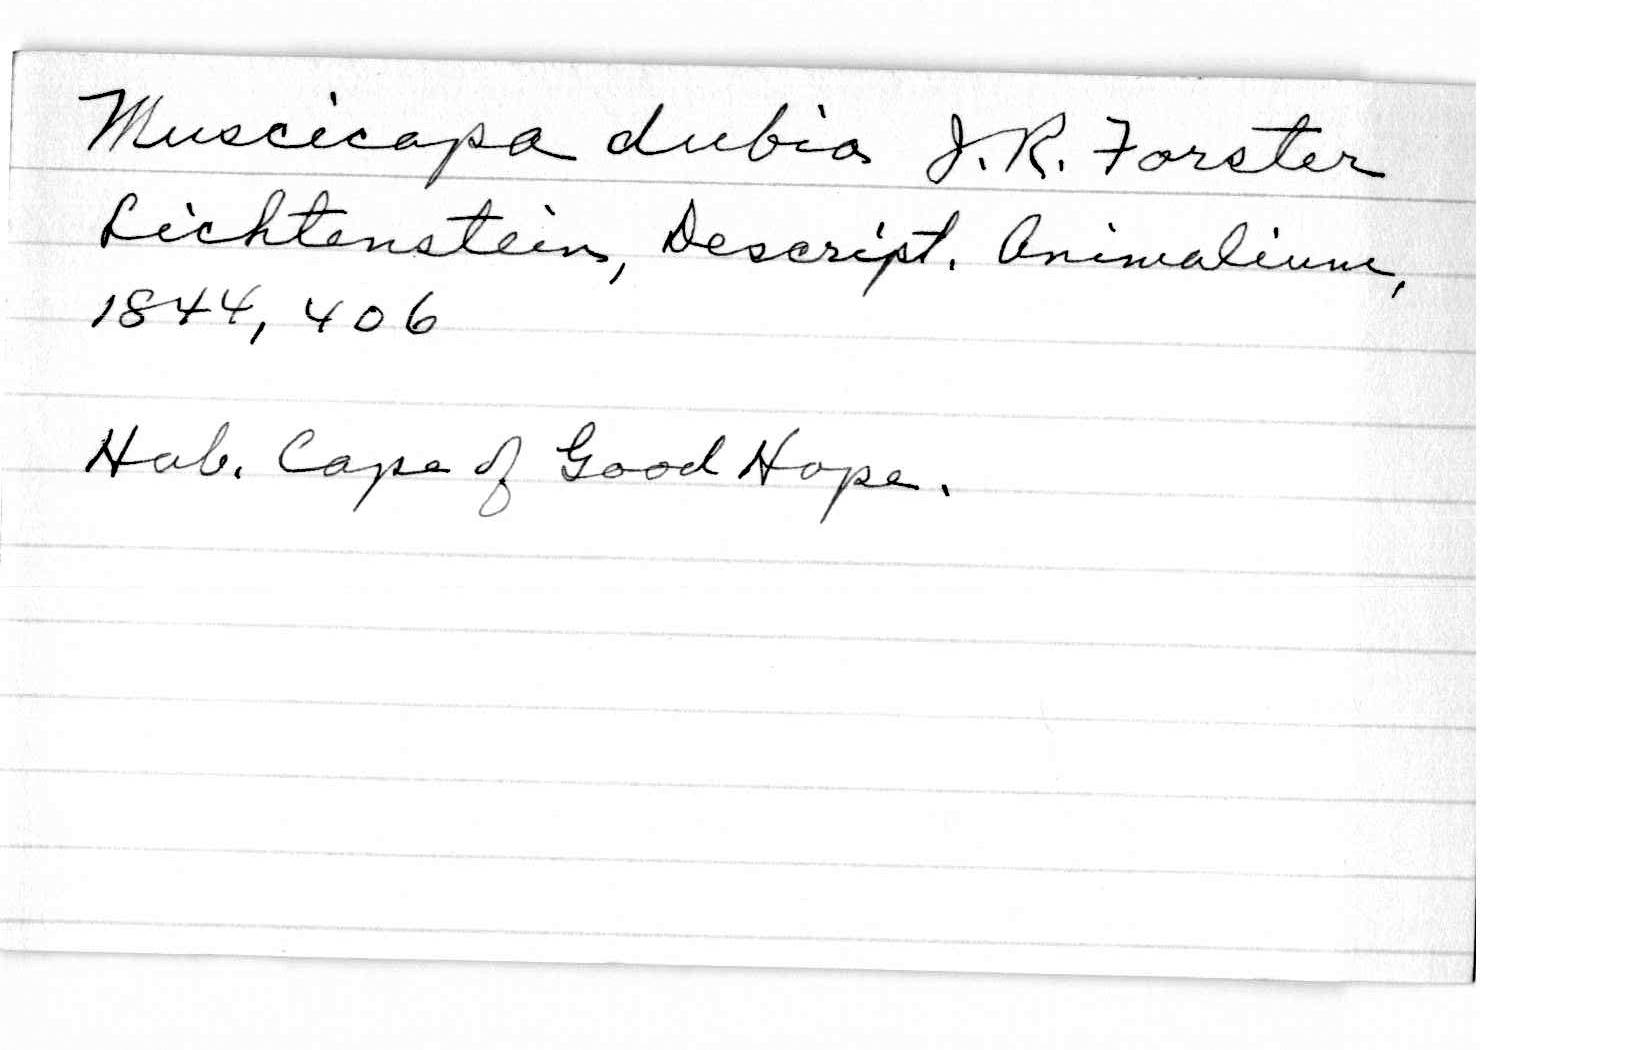 Muscicapa dubia J.R. Forster
Lichtenstein, Descript. Animalium,
1844, 406
Hab. Cape of Good Hope.